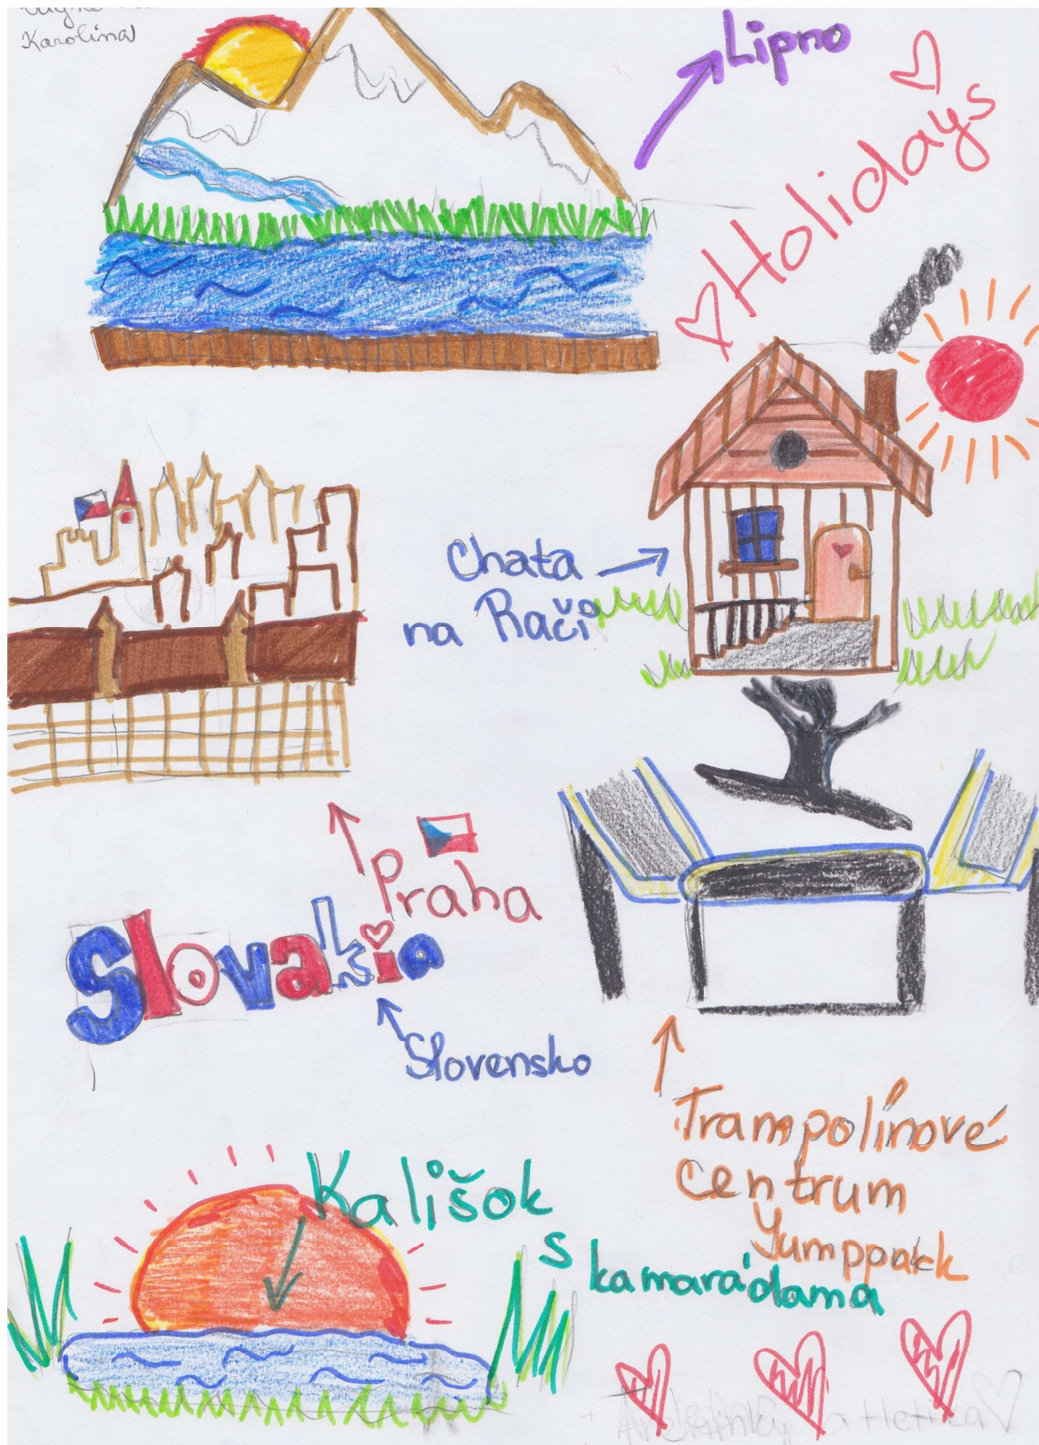 Karolína
Lipno
Holidays
Chata
na Račio
Praha
Slovakia
Slovensko
Trampolínové
centrum
Yumppark
Kališok
s
kamarádama